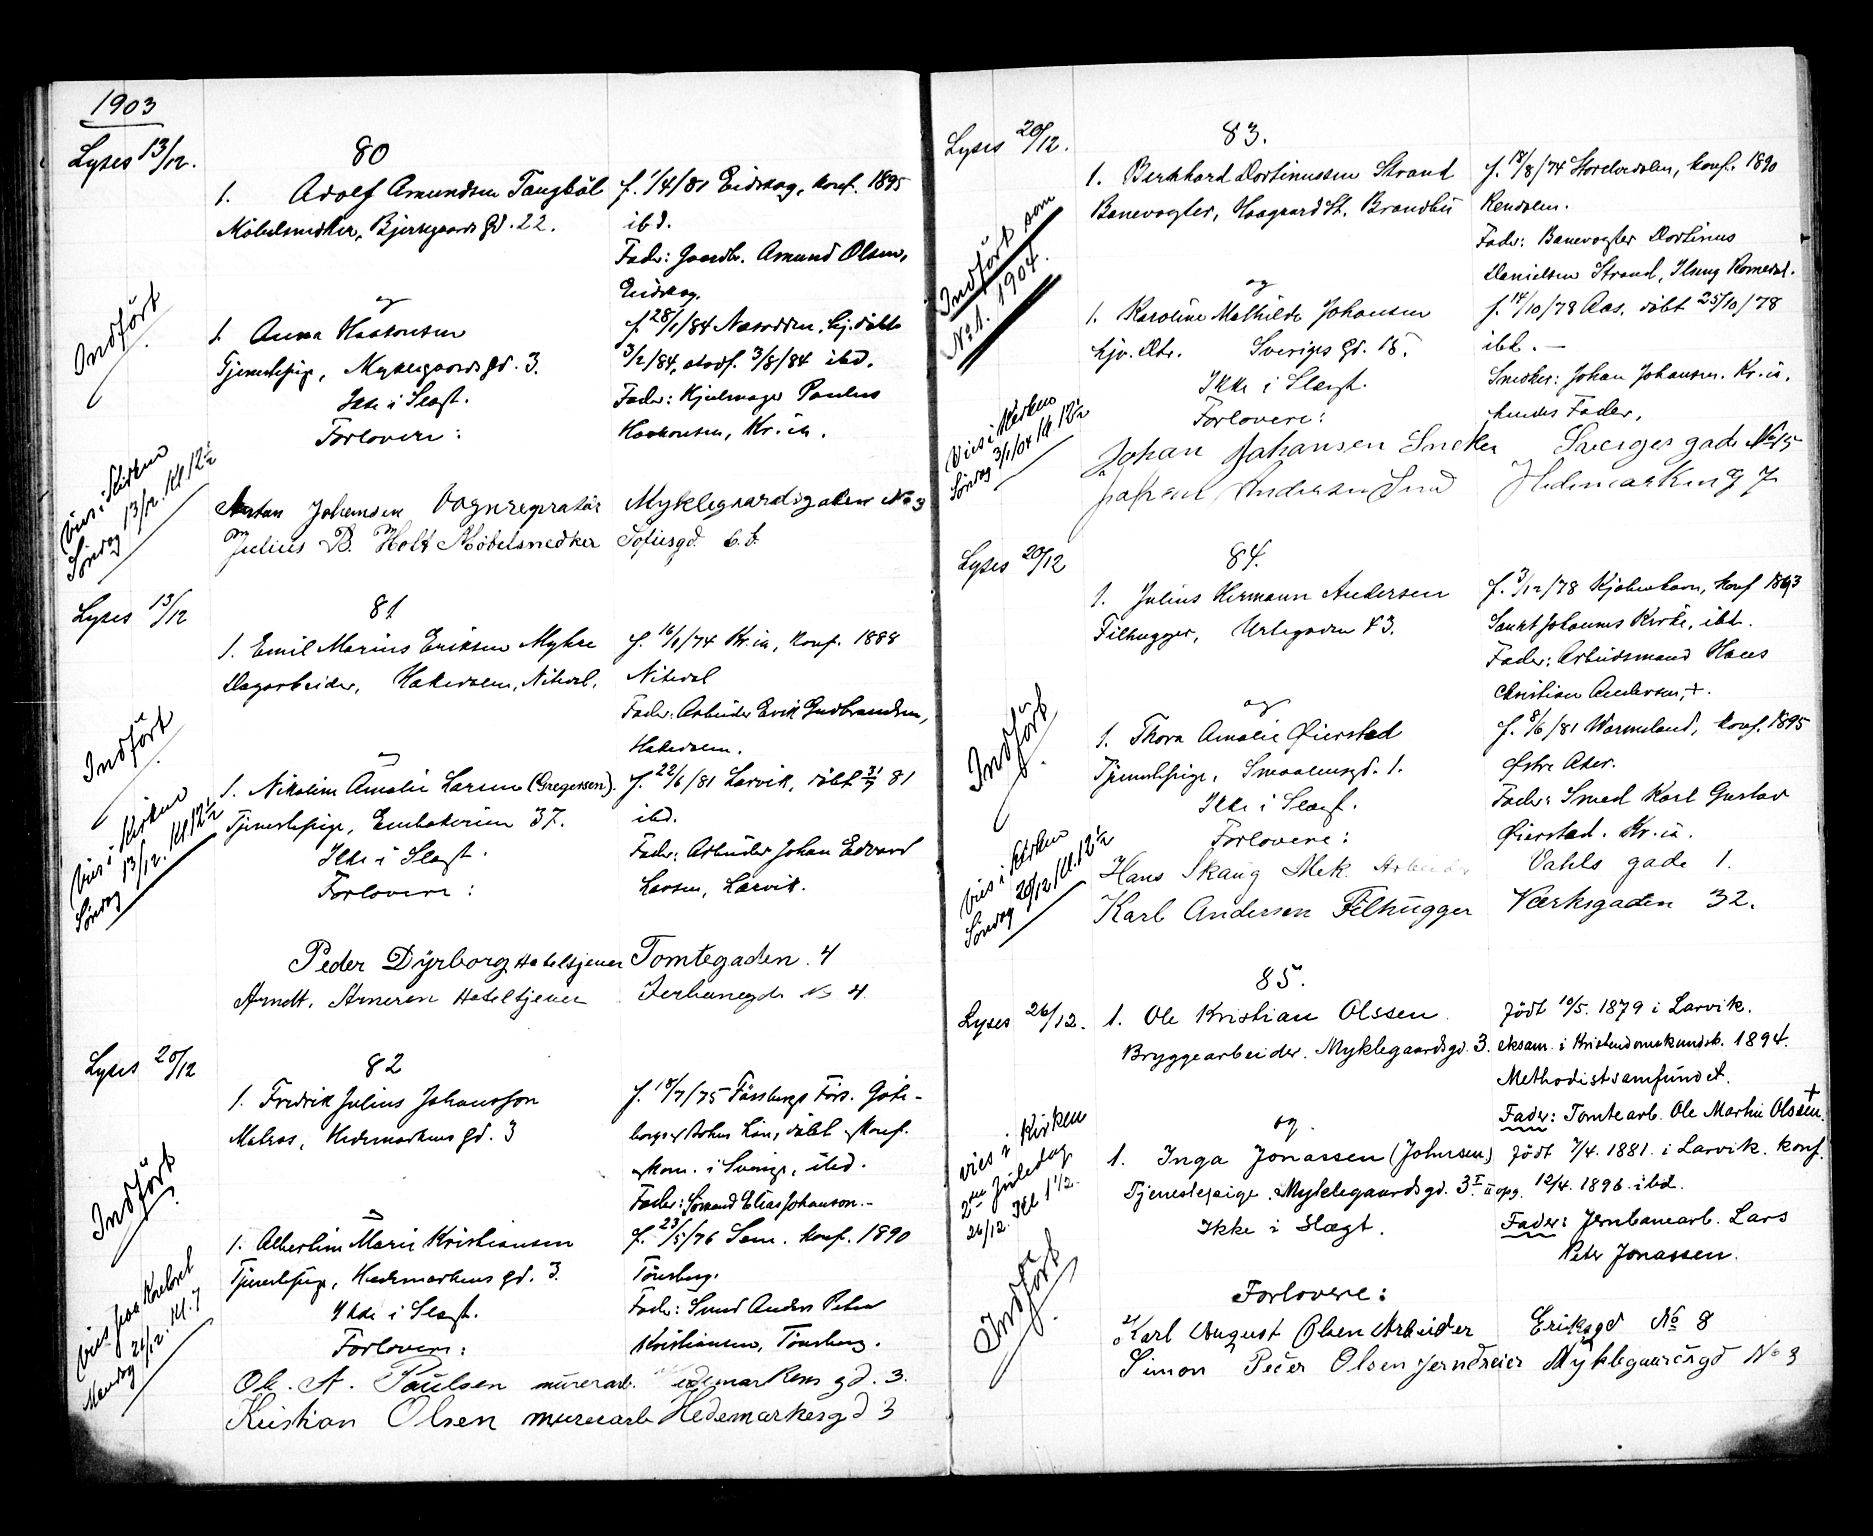 1903
Lyses 13/12.
80
1. Adolf Amundsen Tangböl
Möbelsnedker, Bjerkegaards gd. 22.
f. 1/4/81 Eidskog, konf. 1895
ibd.
Fader: Gaardbr. Amund Olsen,
Eidskog.
og
1. Anna Haakonsen
Tjenestepige, Myklegaards gd. 3.
Ikke i Slægt.
Forlovere:
f. 28/1/84 Næsodden, hj. döbt
3/2/84, 3/8/84 ibd.
Fader: Hjulmager Paulus
Haakonsen, Kr.ia.
Indfört
Vies i Kirken
Söndag 13/12. Kl 12 1/2
Anton Johansen Vognrepratör Myklegaardsgaten No 3
Julius B. Holt Möbelsnedker Sofiesgd.
Lyses 13/12
81
1. Emil Marius Eriksen Myhre
Dagarbeider, Hakedalen, Nitedal.
f. 16/1/74 Kr.ia, konf. 1888
Nitedal
Fader: Arbeider Erik Gudbrandsen,
Hakedalen.
1. Nikoline Amalie Larsen (Gregersen).
Tjenestepige, Enebakveien 37.
Ikke i Slægt.
Forlovere:
f. 22/6/81 Larvik, döbt 31/7 81
ibd.
Fader: Arbeider Johan Edvard
Larsen, Larvik.
Indfört
Vies i Kirken
Söndag 13/12. Kl 12 1/2
Peder Dÿrborg Hoteltjener Tomtegaden. 4
Arndt. Arnesen Hoteltjener Jerbanegd. No 4.
Lyses 20/12
82
1. Fredrik Julius Johansson
Matros, Hedemarkens gd. 3
f. 18/7/75 Fässbergs Förs. Göte-
borgs & Bohus Län, döbt & konf.
& kom. i Sverige, ibd.
Fader: Sömand Elias Johanson.-
1. Albertine Marie Kristiansen
Tjenestepige, Hedemarkens gd. 3.
Ikke i Slægt.
Forlovere:
f. 23/5/76 Sem. konf. 1890
Tönsberg.
Fader: Smed Anders Peter
Kristiansen, Tönsberg.
Indfört
Vies paa Kontoret
Mandag 21/12. Kl. 7
Ole. A. Paulsen murerarb. Hedemarkens gd. 3.
Kristian Olsen murerarb Hedemarkesgd 3
Lyses 20/12.
83.
1. Bernhard Dortinussen Strand
Banevogter, Haagaard St. Brandbu
f. 18/8/74 Storelvdalen, konf. 1890
Rendalen.
Fader: Banevogter Dortinus
Danielsen Strand, Ilseng Romedal.
og
1. Karoline Mathilde Johansen
hjv. Dtr. Sveriges gd. 15.
Ikke i Slægt.
Forlovere:
f. 14/10/78 Aas, döbt 25/10/78
ibd. -
Snedker: Johan Johansen. Kr.ia.
hendes Fader.
Indfört som
No 1. 1904.
Vies i Kirken
Söndag 3/1/04 Kl 12 1/2
Johan Johansen Sneker Sverges gade No 15
Andersen Hedemarken g 7
Lyses 20/12
84.
1. Julius Hermann Andersen
Filhugger, Urtegaden 43.
f. 3/12/78 Kjøbenhavn, konf 1893
Sankt Johannes Kirke, ibd.
Fader: Arbeidsmand Hans
Christian Andersen, +.
og
1. Thora Amalie Øierstad
Tjenestepige, Smaalensgd. 1.
Ikke i Slægt.
Forlovere:
f. 8/6/81 Wærmeland, konf. 1895
Østre Aker.
Fader: Smed Karl Gustav
Øierstad. Kr.ia.
Indfört
Vies i Kirken
Söndag 20/12 Kl. 12 1/2
Hans Skaug Mek. Arbeider Vahls gade 1.
Karl Andersen Filhugger Værksgaden 32.
85.
Lyses 26/12.
1. Ole Kristian Olssen.
Bryggearbeider. Myklegaardsgd. 3.
Födt 10/5. 1879 i Larvik.
eksam. i Kristendomskundsk. 1894.
Methodistsamfundet.
Fader: Tomtearb. Ole Martin Olssen. +
og.
1. Inga Jonassen (Johnsen)
Tjenestepige. Myklegaardsgd. 3 I. II opg.
Ikke i Slægt.
Födt 7/4. 1881. i Larvik. konf.
12/4. 1896. ibd.
Fader: Jernbanearb. Lars
Peter Jonassen.
Vies i Kirken
2den Juledag
26/12. Kl 1 1/2.
Indfört
Forlovere:
Karl August Olsen Arbeider Eriksgd No 8
Simon Peder Olsen Jerndreier Myklegaardsgd No 3